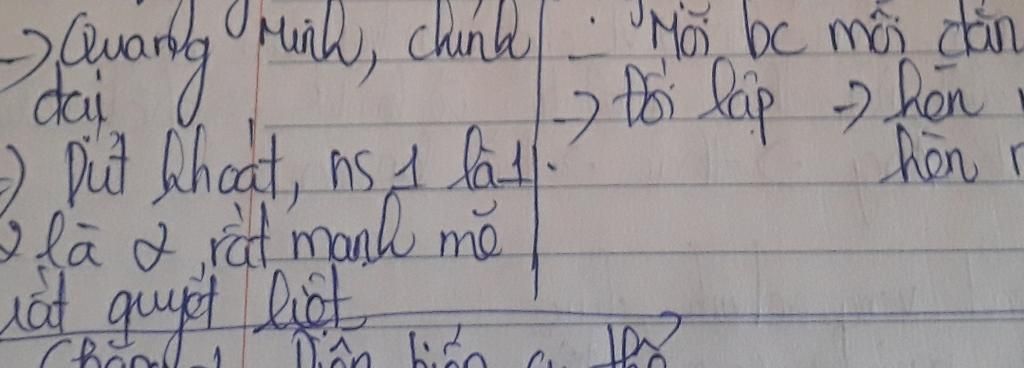 -> Quang Minh, chính
đại
Dứt khoát, ns 1 là 1.
2 là 2, rất mạnh mẽ
rất quyết liệt
: "Mỗi bc mỗi
-> Đối lập -> hèn
hèn
Diễn biến